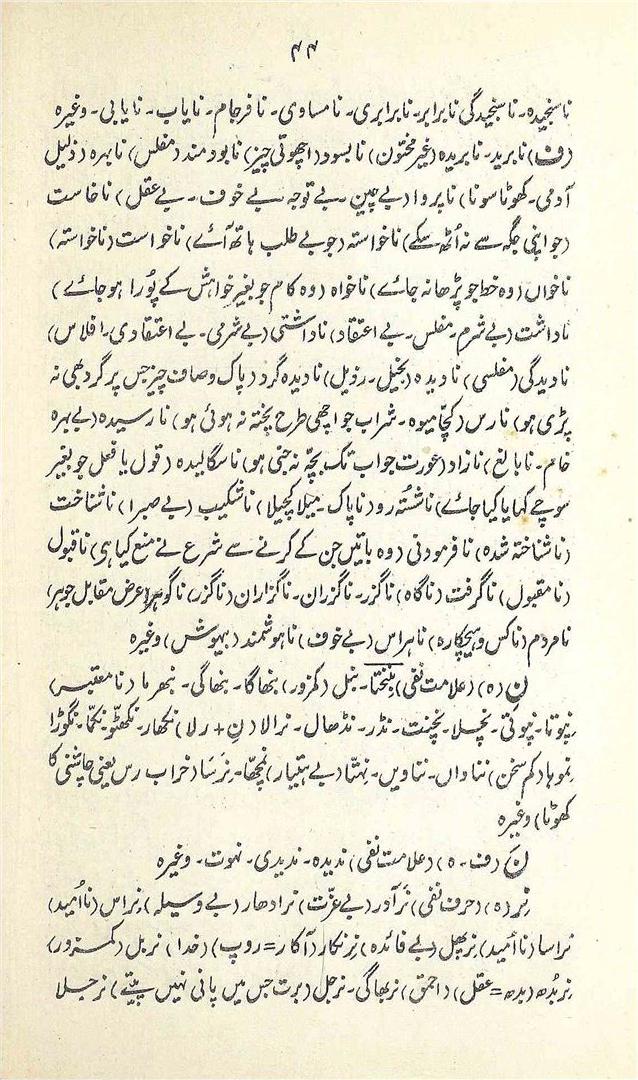 ۴۴
ناسنجیدہ۔ ناسنجیدگی نابرابر۔ نابرابری۔ نامساوی۔ نافرجام۔ نایاب۔ نایابی۔ وغیرہ
(ف) نابرید۔ نابریدہ (غیر مختون) نابسود (اچھوتی چیز) نابودمند (مفلس) نابہرہ (ذلیل
آدمی۔ کھوٹا سونا) ناپروا (بے چین۔ بے توجہ۔ بے خوف۔ بے عقل) ناخاست
(جو اپنی جگہ سے نہ اُٹھ سکے) ناخواستہ (جو بے طلب ہاتھ آئے) ناخواست (ناخواستہ)
ناخواں (وہ خط جو پڑھا نہ جائے) ناخواہ (وہ کام جو بغیر خواہش کے پُورا ہو جائے)
ناداشت (بے شرم۔ مفلس۔ بے اعتقاد) ناداشتی (بے شرمی۔ بے اعتقادی۔ افلاس)
نادیدگی (مفلسی) نادیدہ (بخیل۔ رذیل) نادیدہ گرد (پاک و صاف چیز جس پر گرد بھی نہ
پڑی ہو) نارس (کچّا میوہ۔ شراب جو اچھی طرح پختہ نہ ہوئی ہو) نارسیدہ (بے بہرہ
خام۔ نابالغ) نازاد (عورت جو اب تک بچّہ نہ جنی ہو) ناسگالیدہ (قول یا فعل جو بغیر
سوچے کہا یا کیا جائے) ناشُستہ رو (ناپاک۔ میلا کچیلا) ناشکیب (بے صبرا) ناشناخت
(ناشناختہ شدہ) نافرمودنی (وہ باتیں جن کے کرنے سے شرع نے منع کیا ہی) ناقبول
(نامقبول) ناگرفت (ناگاہ) ناگزر۔ ناگزران۔ ناگزاران (ناگزر) ناگوہر (عرض مقابل جوہر)
نامردم (ناکس و ہیچکارہ) ناہراس (بے خوف) ناہوشمند (بیہوش) وغیرہ
نِ (ہ) (علامت نفی) نِنختا۔ نبل (کمزور) نبھاگا۔ نبھاگی۔ نبھرما (نامعتبر)
نپوتا۔ نپوتی۔ نچلا۔ نچنت۔ نڈر۔ نڈھال۔ نرالا (نِ + رلا) نکھار۔ نکھٹو۔ نکمّا۔ نگوڑا
نموہا (کم سخن) نتاواں۔ نتاویں۔ نہتّا (بے ہتیار) نمچھا۔ نِرَسَا (خراب رس یعنی چاشنی کا
کھوٹا) وغیرہ
نَ (ف۔ ہ) (علامت نفی) ندیدہ۔ ندیدی۔ نہوت۔ وغیرہ
نِر (ہ) (حرف نفی) نرآور (بے عزّت) نرادھار (بے وسیلہ) نِراس (نااُمید)
نراسا (نااُمید) نرپھل (بے فائدہ) نِرنکار (آکار = روپ) (خدا) نربل (کمزور)
نِربُدھ (بدھ = عقل) (احمق) نربھاگی۔ نرجل (برت جس میں پانی نہیں پیتے) نرجلا